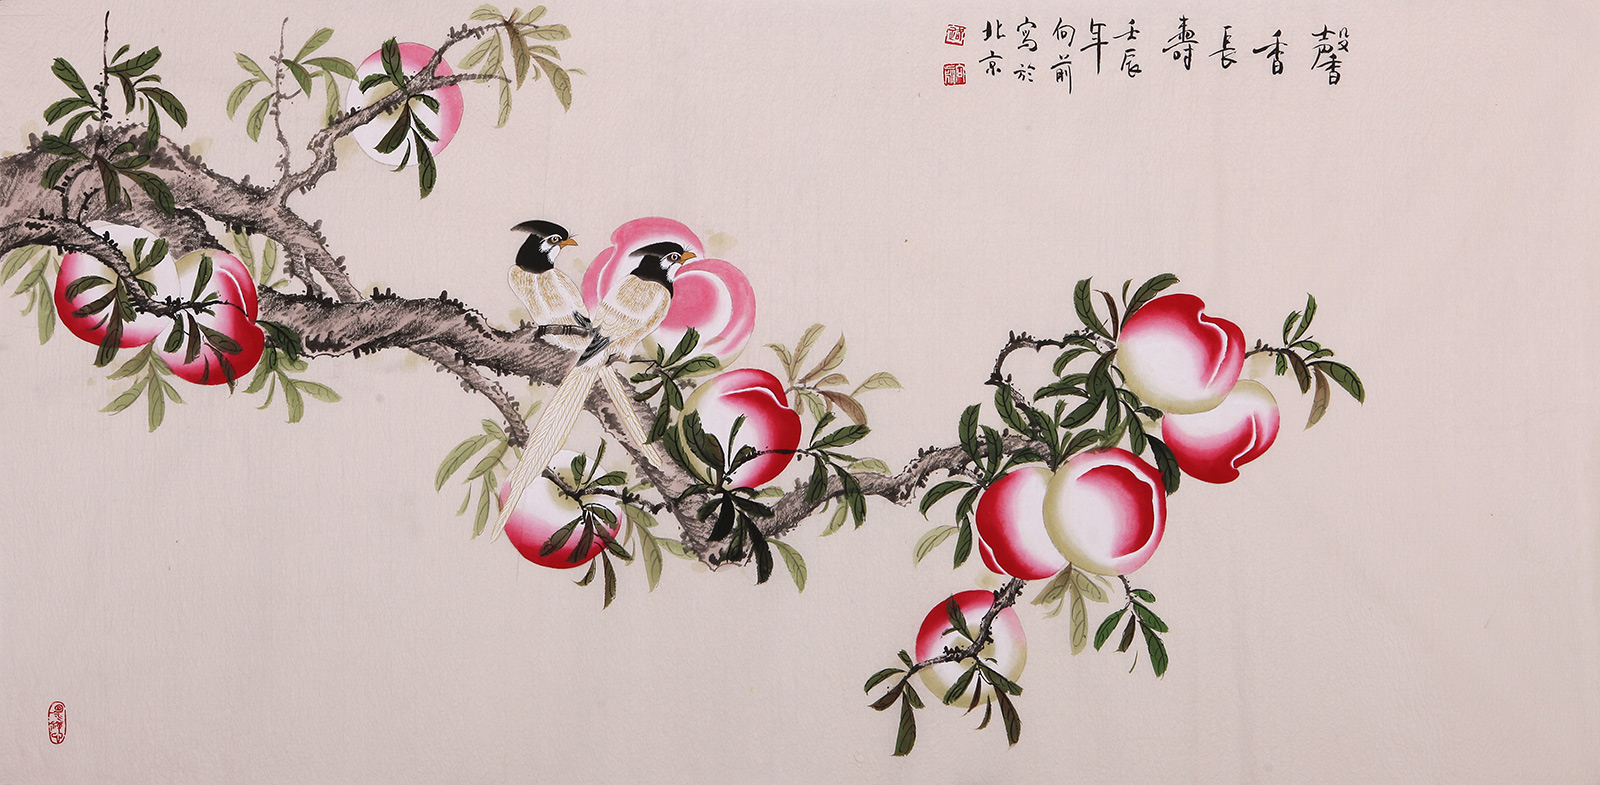 馨香長壽
壬辰年向前寫於北京